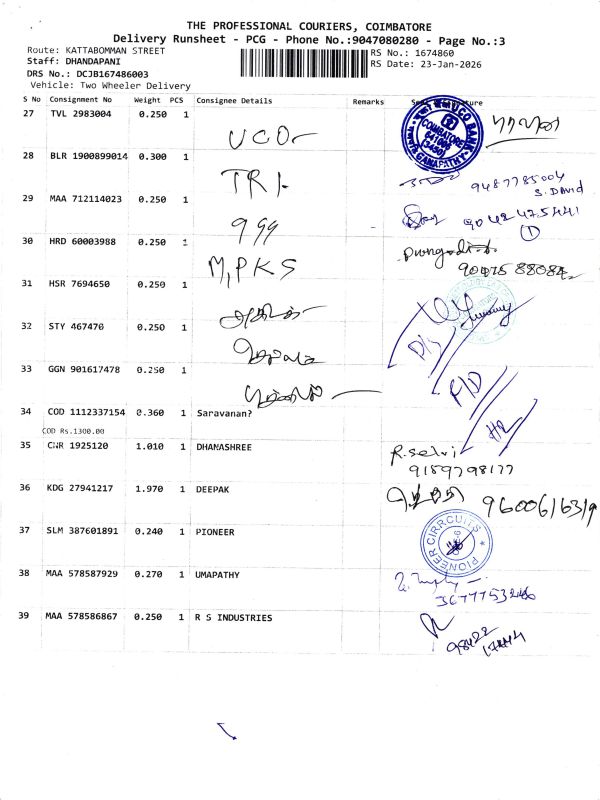 THE PROFESSIONAL COURIERS, COIMBATORE
Delivery Runsheet - PCG - Phone No.:9047080280 - Page No.:3
Route: KATTABOMMAN STREET
RS No.: 1674860
Staff: DHANDAPANI
RS Date: 23-Jan-2026
DRS No.: DCJB167486003
Vehicle: Two Wheeler Delivery
S No Consignment No Weight PCS Consignee Details Remarks
27 TVL 2983004 0.250 1 UCO
UCO BANK
COIMBATORE
GANAPATHY
28 BLR 1900899014 0.300 1 TRI-
9487785004
S. DAVID
29 MAA 712114023 0.250 1 999
9042475441
1
30 HRD 60003988 0.250 1 M,PKS
31 HSR 7694650 0.250 1
32 STY 467470 0.250 1
D/S
33 GGN 901617478 0.250 1
F/D
34 COD 1112337154 0.360 1 Saravanan?
HR
COD Rs.1300.00
35 CNR 1925120 1.010 1 DHANASHREE
R. Selvi
9159798177
36 KDG 27941217 1.970 1 DEEPAK
9600616319
37 SLM 387601891 0.240 1 PIONEER
PIONEER CIRRCUITS
38 MAA 578587929 0.270 1 UMAPATHY
39 MAA 578586867 0.250 1 R S INDUSTRIES
98422